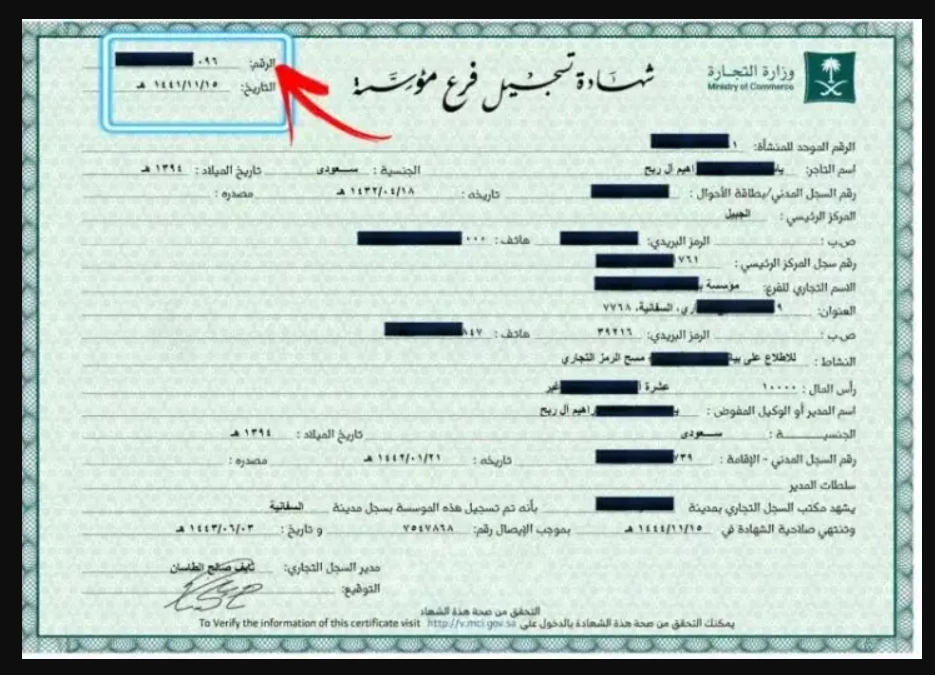 وزارة التجارة
Ministry of Commerce
شهادة تسجيل فرع مؤسسة
الرقم: ٠٩٦
التاريخ: ١٤٤١/١١/١٥ هـ
الرقم الموحد للمنشأة: ١
اسم التاجر: يا اهيم آل ربح الجنسية : سعودي تاريخ الميلاد : ١٣٩٤ هـ
رقم السجل المدني/بطاقة الأحوال : تاريخه : ١٤٣٢/٠٤/١٨ هـ مصدره :
المركز الرئيسي : الجبيل
ص.ب : الرمز البريدي: هاتف : ٠٠٠
رقم سجل المركز الرئيسي : ٧٦١
الاسم التجاري للفرع: مؤسسة
العنوان: ٩ اري، السفانية، ٧٧٦٨
ص.ب : الرمز البريدي: ٣٩٢١٦ هاتف : ٨٤٧
النشاط : للاطلاع على بيا مسح الرمز التجاري
رأس المال : ١٠٠٠٠ عشرة غير
اسم المدير أو الوكيل المفوض : ي راهيم آل ربح
الجنسيــة : سعودي تاريخ الميلاد : ١٣٩٤ هـ
رقم السجل المدني - الإقامة : ٧٣٩ تاريخه : ١٤٤٢/٠١/٢١ هـ مصدره :
سلطات المدير
يشهد مكتب السجل التجاري بمدينة بأنه تم تسجيل هذه الموسسة بسجل مدينة السفانية
وتنتهي صلاحية الشهادة في ١٤٤٤/١١/١٥ هـ بموجب الإيصال رقم: ٧٥٤٧٨٦٨ و تاريخ : ١٤٤٣/٠٦/٠٣ هـ
مدير السجل التجاري: نايف صالح الطاسان
التوقيع:
التحقق من صحة هذة الشهاد
يمكنك التحقق من صحة هذة الشهادة بالدخول على http://v.mci.gov.sa To Verify the information of this certificate visit